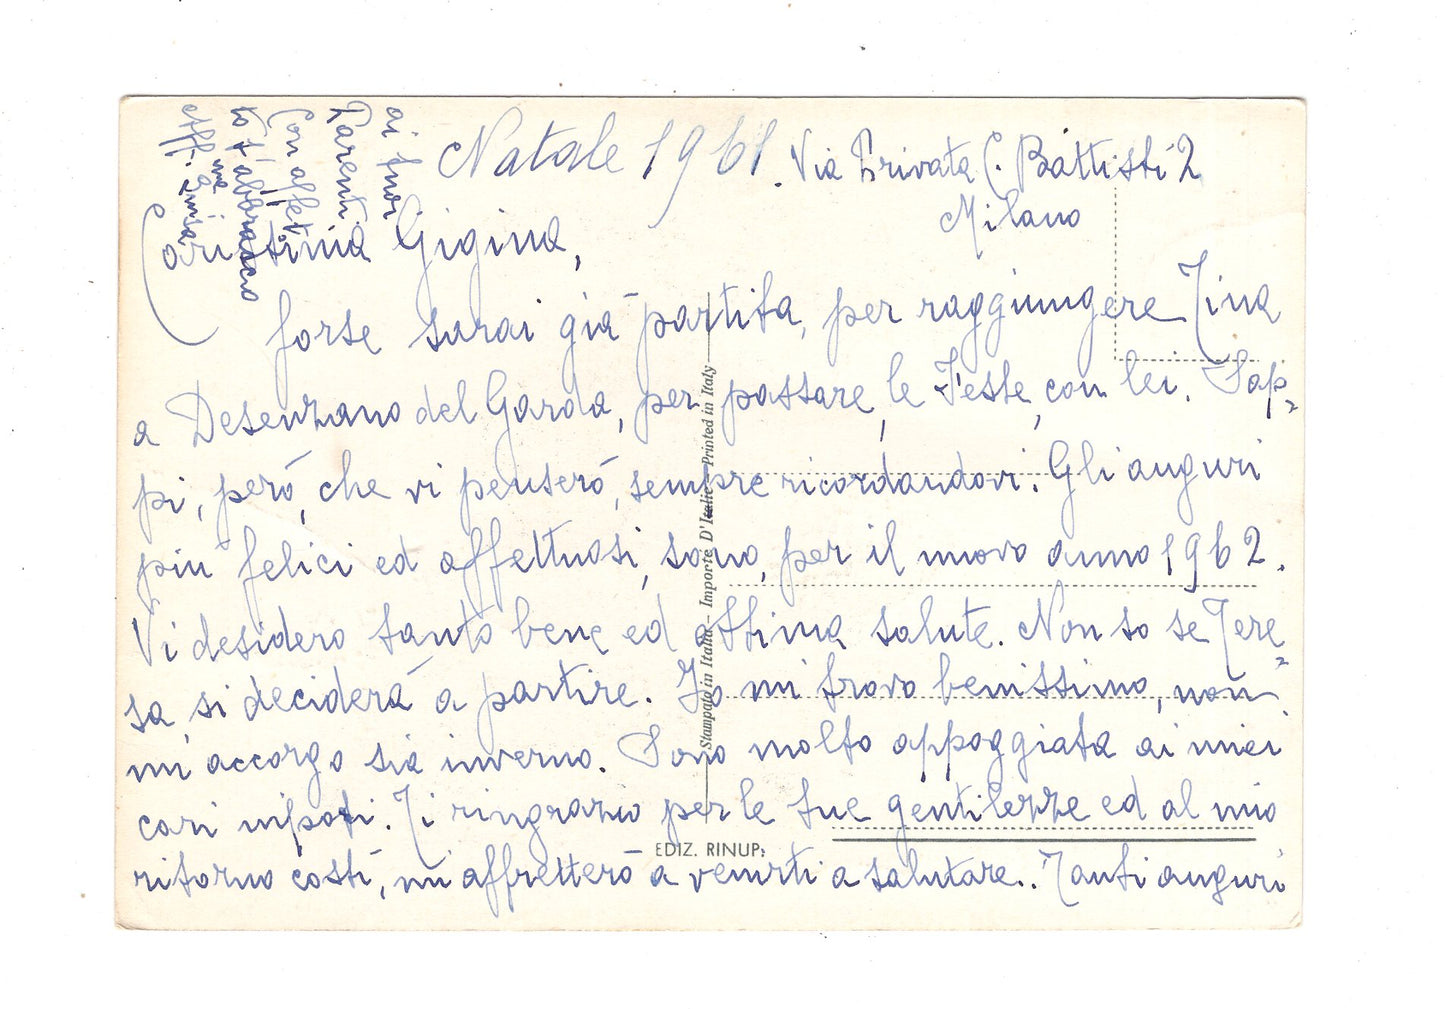 Natale 1961. Via Privata C. Battisti 2
Milano
Carissima Gigina,
forse sarai già partita, per raggiungere Tina
a Desenzano del Garda, per passare, le Feste, con lei. Sap=
pi, però, che vi penserò, sempre ricordandovi. Gli auguri
più felici ed affettuosi, sono, per il nuovo anno 1962.
Vi desidero tanto bene ed ottima salute. Non so se Tere=
sa, si deciderà a partire. Io mi trovo benissimo, non
mi accorgo sia inverno. Sono molto appoggiata ai miei
cari nipoti. Ti ringrazio per le tue gentilezze ed al mio
ritorno costì, mi affretterò a venirti a salutare.. Tanti auguri
ai tuoi
Parenti.
Con affet
to t'abbraccio
una
aff. Luisa
Stampato in Italia - Importe D'Italie - Printed in Italy
EDIZ. RINUP: